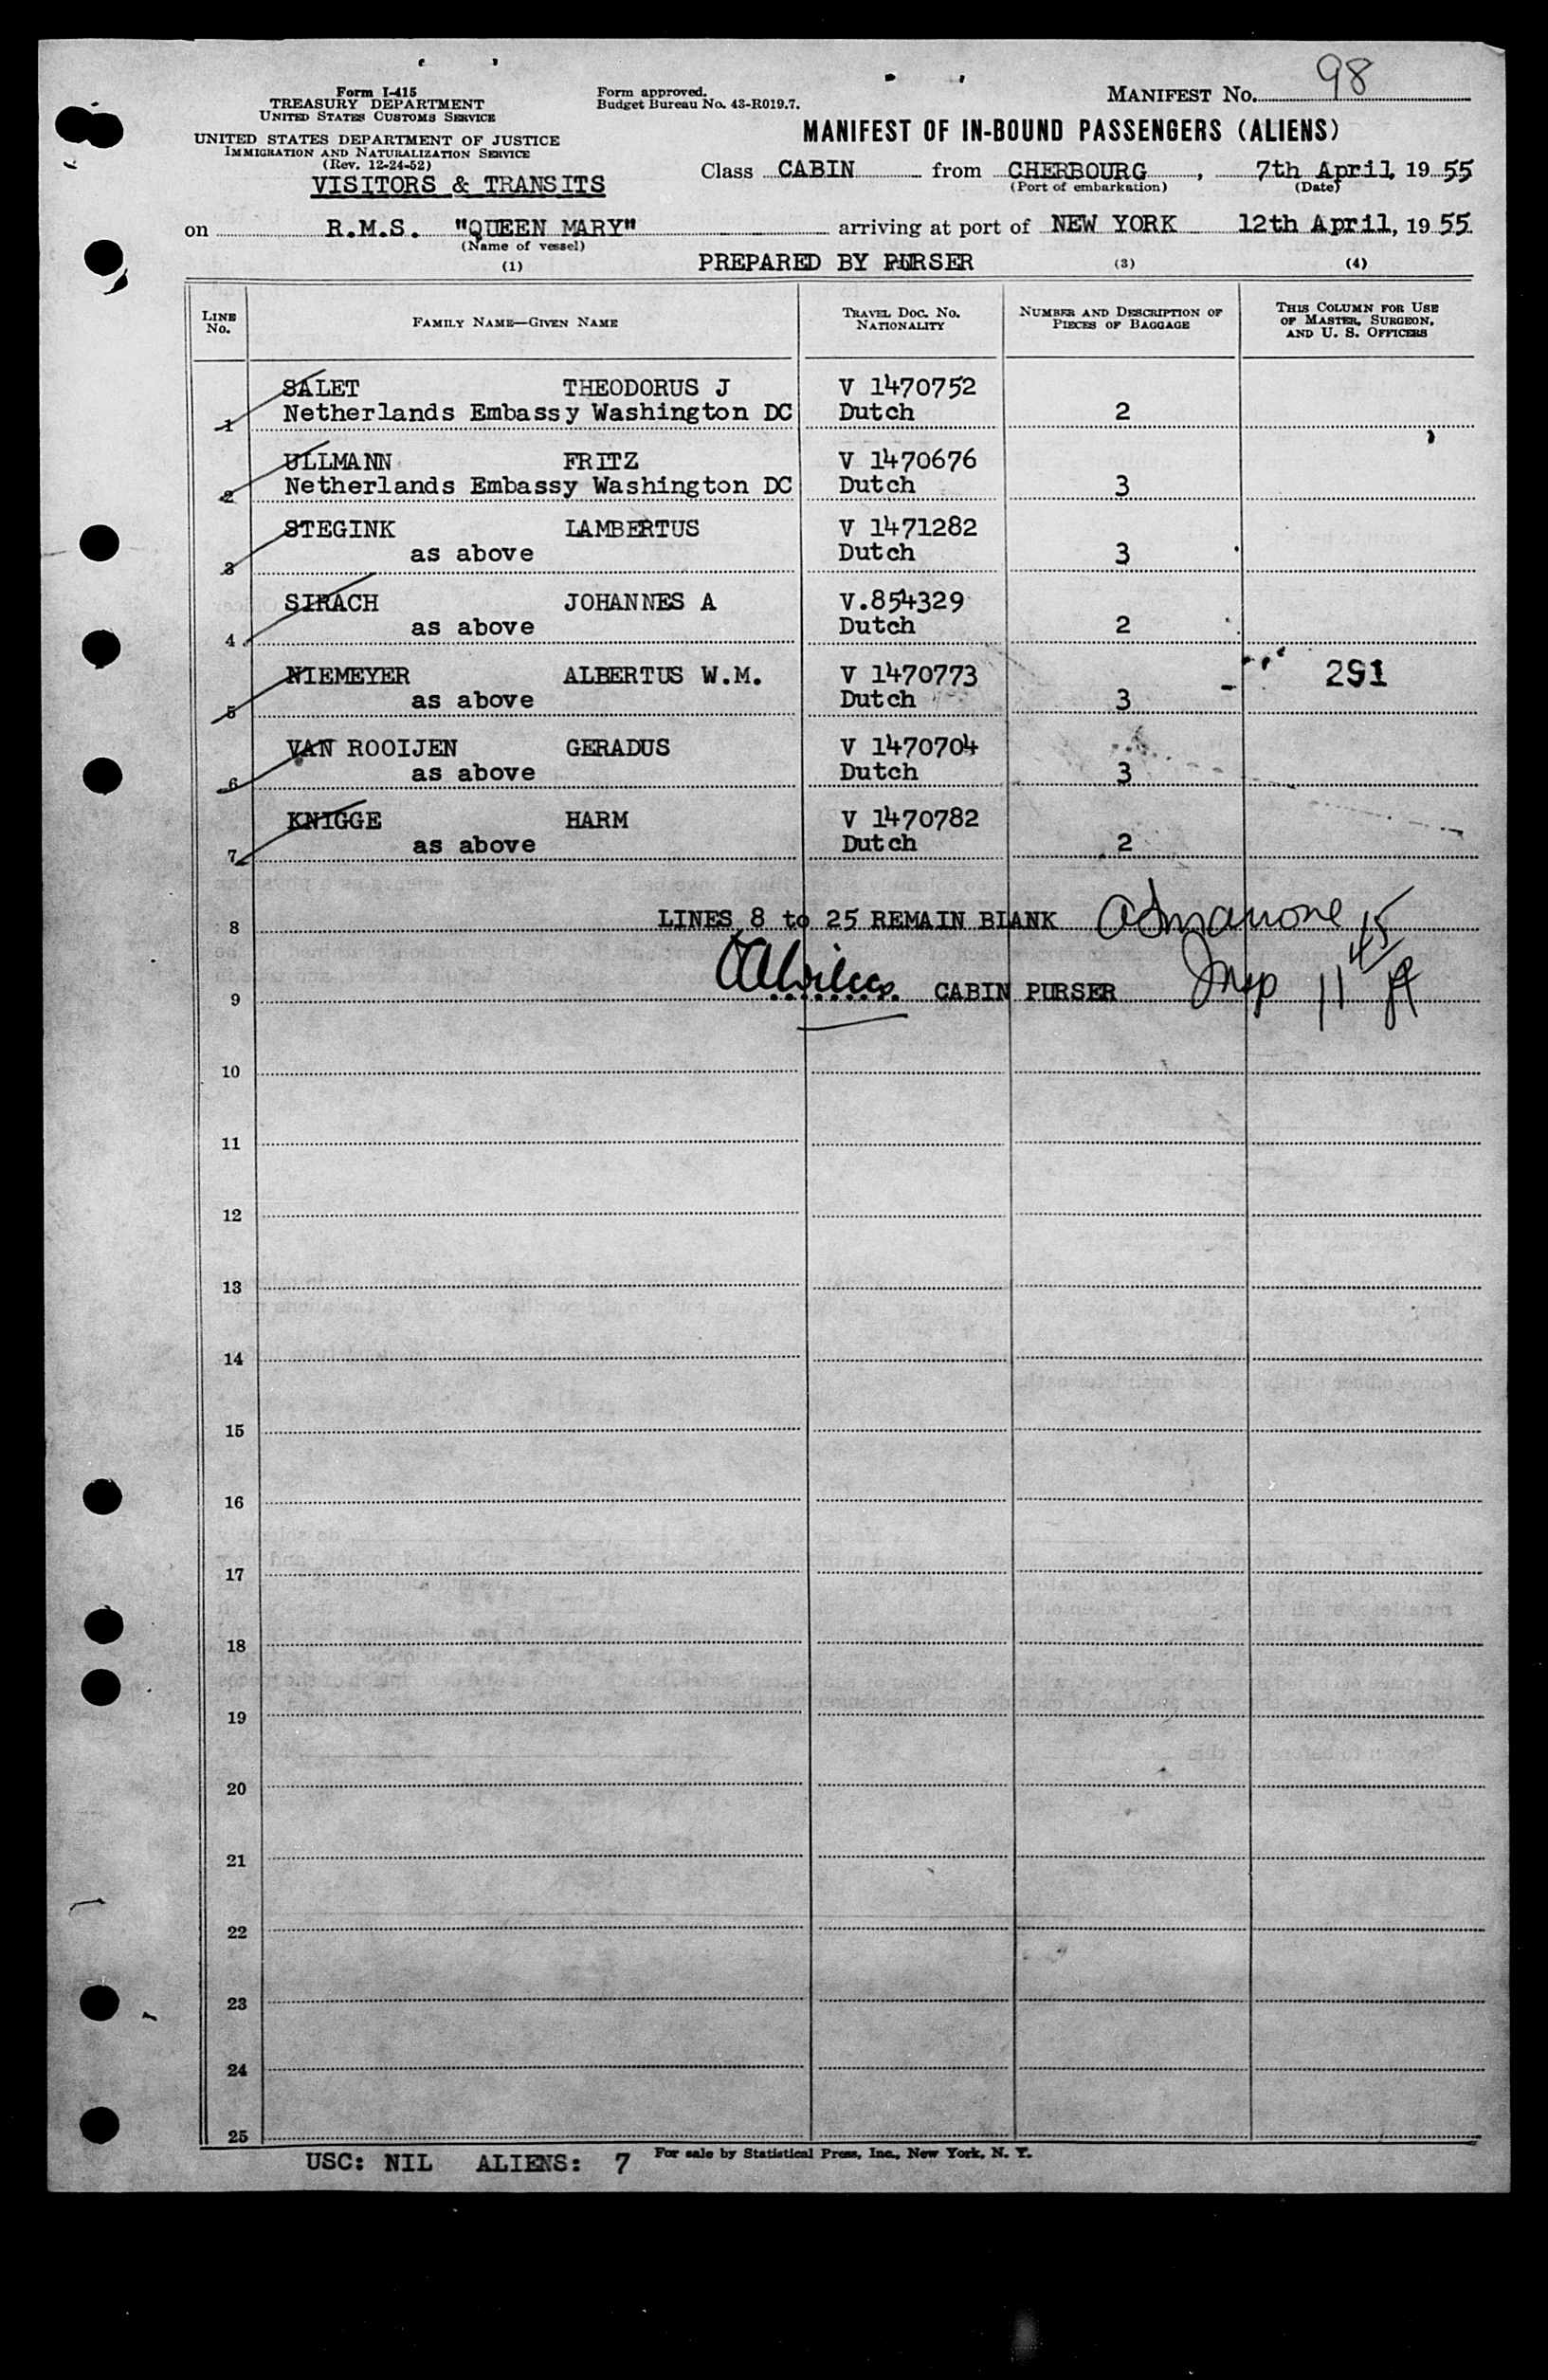 98
Form I-415
TREASURY DEPARTMENT
UNITED STATES CUSTOMS SERVICE
Form approved.
Budget Bureau No. 43-R019.7.
MANIFEST No.
UNITED STATES DEPARTMENT OF JUSTICE
IMMIGRATION AND NATURALIZATION SERVICE
(Rev. 12-24-52)
VISITORS & TRANSITS
MANIFEST OF IN-BOUND PASSENGERS (ALIENS)
Class CABIN from CHERBOURG, 7th April, 1955
(Port of embarkation) (Date)
on R.M.S. "QUEEN MARY" arriving at port of NEW YORK 12th April, 1955
(Name of vessel)
(1) PREPARED BY PURSER (3) (4)
LINE No. FAMILY NAME—GIVEN NAME TRAVEL DOC. No. NATIONALITY NUMBER AND DESCRIPTION OF PIECES OF BAGGAGE THIS COLUMN FOR USE OF MASTER, SURGEON, AND U. S. OFFICERS
SALET THEODORUS J V 1470752
1 Netherlands Embassy Washington DC Dutch 2
ULLMANN FRITZ V 1470676
2 Netherlands Embassy Washington DC Dutch 3
STEGINK LAMBERTUS V 1471282
3 as above Dutch 3
SIRACH JOHANNES A V.854329
4 as above Dutch 2
NIEMEYER ALBERTUS W.M. V 1470773 291
5 as above Dutch 3
VAN ROOIJEN GERADUS V 1470704
6 as above Dutch 3
KNIGGE HARM V 1470782
7 as above Dutch 2
8 LINES 8 to 25 REMAIN BLANK
9 CABIN PURSER Insp 11 45 A
10
11
12
13
14
15
16
17
18
19
20
21
22
23
24
25
USC: NIL ALIENS: 7 For sale by Statistical Press, Inc., New York, N. Y.